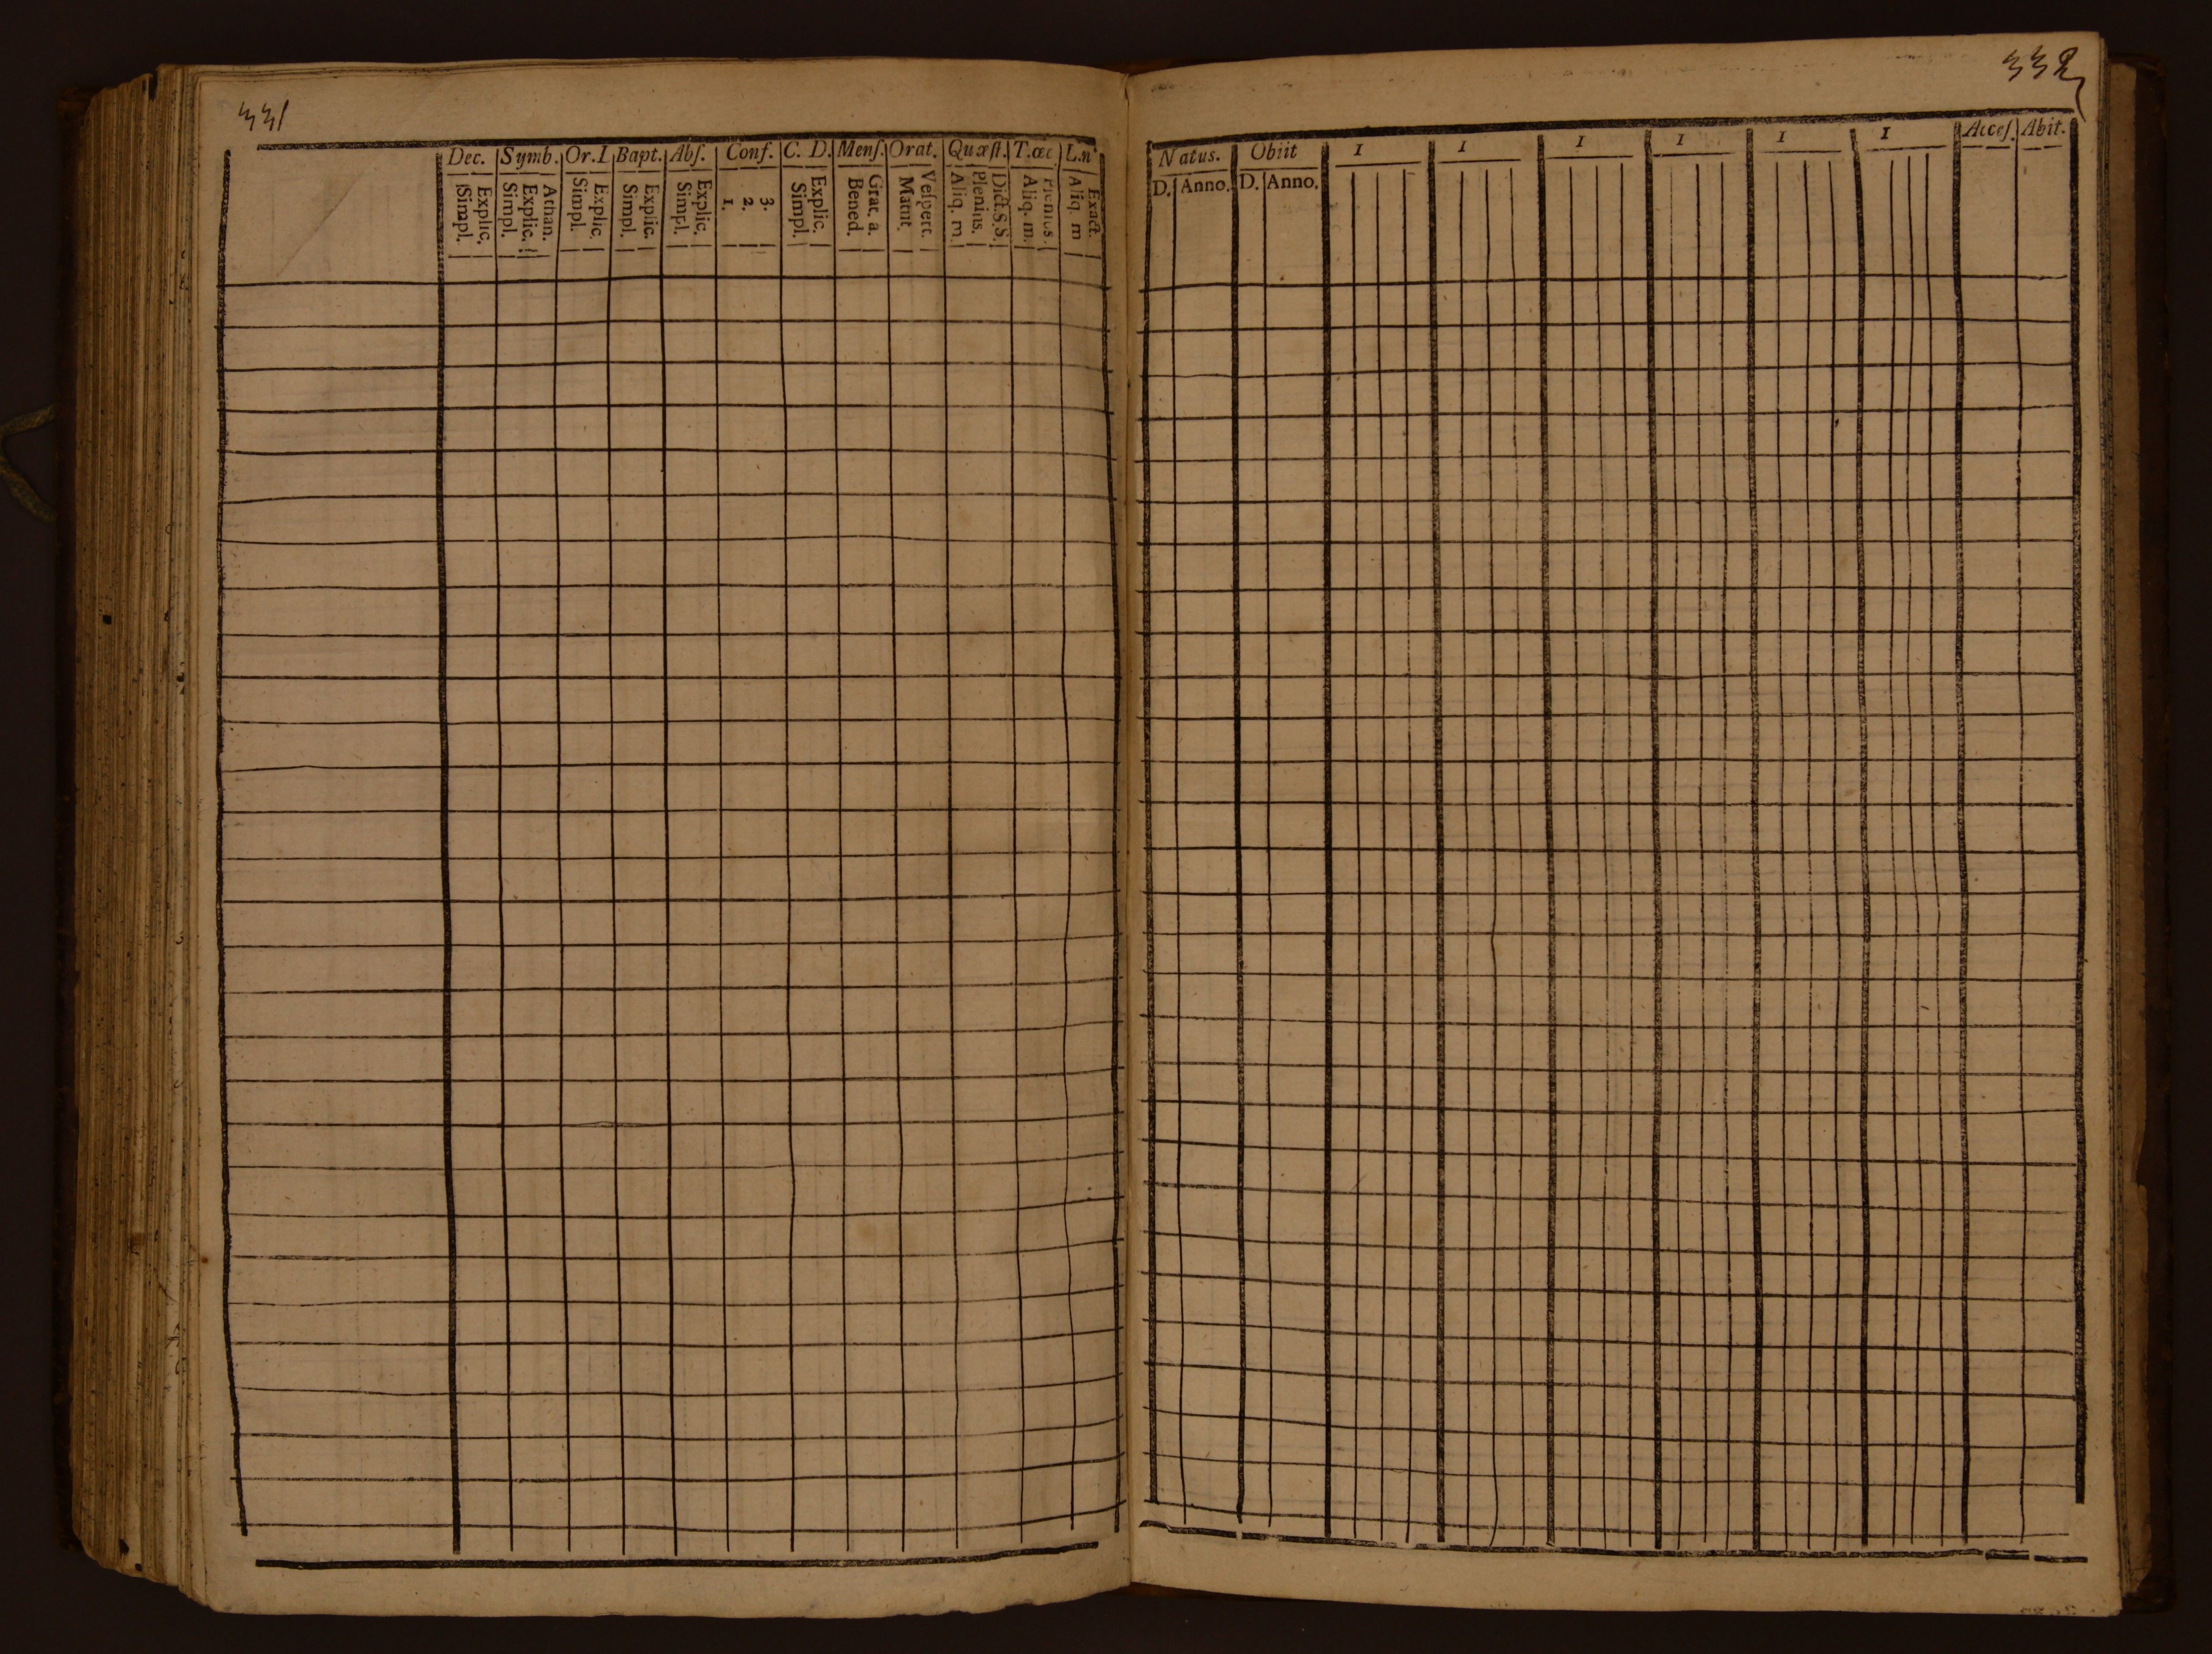 331
Dec. Symb. Or. I Bapt. Abſ. Conf. C. D. Menſ. Orat. Quæſt. T. œc L. n
Explic. Simpl.
Athan. Explic. Simpl.
Explic. Simpl.
Explic. Simpl.
Explic. Simpl.
3. 2. 1.
Explic. Simpl.
Grat. a. Bened.
Veſpert. Matut.
Dict. S. S. Plenius. Aliq. m.
Plenius. Aliq. m.
Exact. Aliq. m
332
Natus. Obiit I I I I I I Acceſ. Abit.
D. Anno. D. Anno.